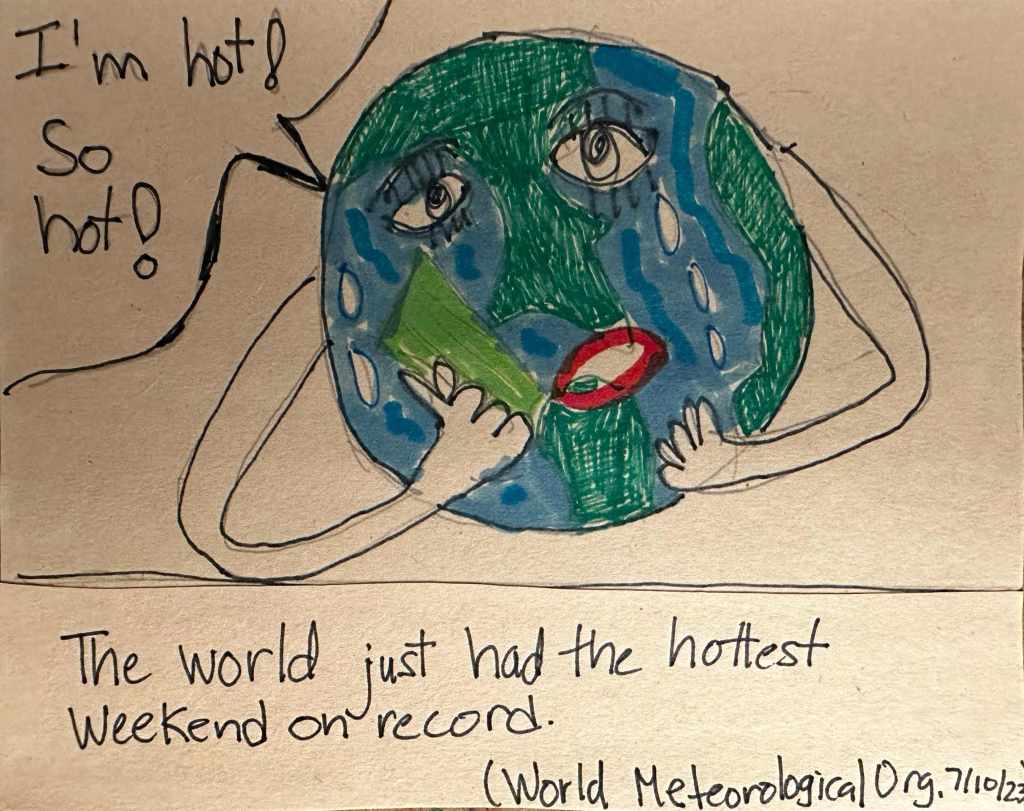 I'm hot!
So
hot!
The world just had the hottest
weekend on record.
(World Meteorological Org. 7/10/23